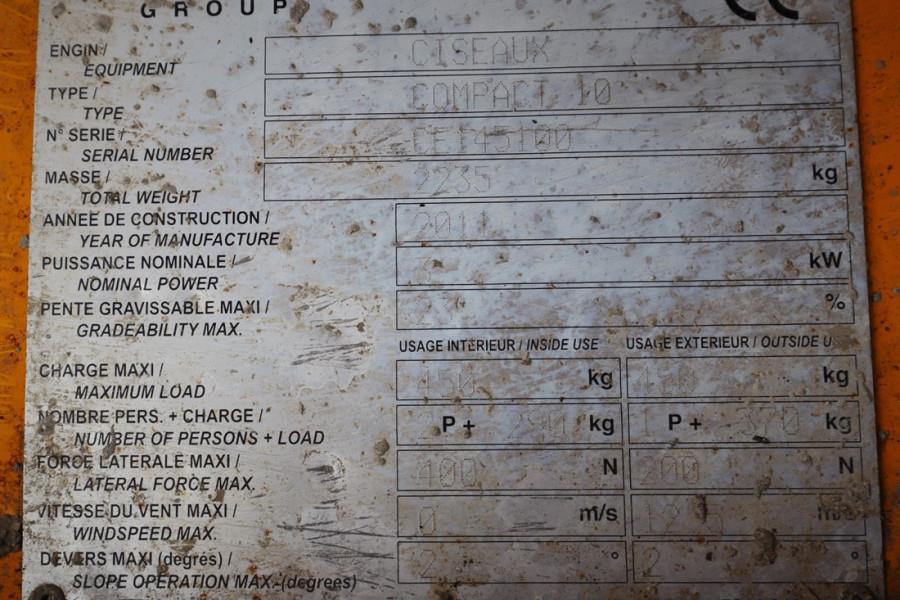 GROUP
CE
ENGIN / CISEAUX
EQUIPMENT
TYPE / COMPACT 10
TYPE
N° SERIE / CE145100
SERIAL NUMBER
MASSE / 2235 kg
TOTAL WEIGHT
ANNEE DE CONSTRUCTION / 2011
YEAR OF MANUFACTURE
PUISSANCE NOMINALE / kW
NOMINAL POWER
PENTE GRAVISSABLE MAXI / %
GRADEABILITY MAX.
USAGE INTERIEUR / INSIDE USE USAGE EXTERIEUR / OUTSIDE U
CHARGE MAXI / 450 kg kg
MAXIMUM LOAD
NOMBRE PERS. + CHARGE / 2 P + 290 kg 1 P + 370 kg
NUMBER OF PERSONS + LOAD
FORCE LATERALE MAXI / 400 N 200 N
LATERAL FORCE MAX.
VITESSE DU VENT MAXI / 0 m/s m/s
WINDSPEED MAX.
DEVERS MAXI (degrés) / 2 ° 2 °
SLOPE OPERATION MAX. (degrees)